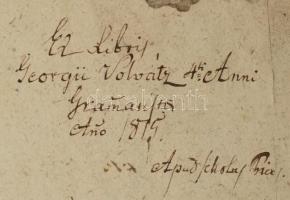 Ex Libris
Georgii Volvátz 4ti Anni
Gramatistæ
Año 1815.
Apud Scholas Piar.